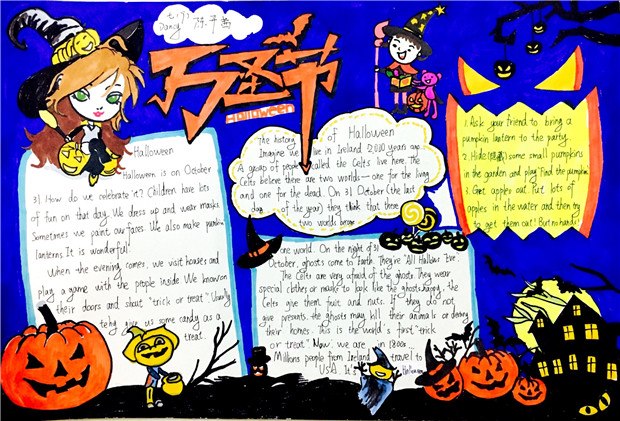 万圣节
Halloween
Halloween
Halloween is on October
31 How do we celebrate it? Children have lots
of fun on that day. We dress up and wear masks
Sometimes we paint our faces. We also make pumkin
lanterns. It is wonderful
When the evening comes, we visit houses and
play a game with the people inside We know on
their doors and shout "trick or treat". Usually
give us some candy as a
treat.
The history of Halloween
Imagine we live in Ireland 2000 years ago
A group of people called the Celts live here. The
Celts believe there are two worlds — one for the living
and one for the dead. On 31 October (the last
day of the year) they think that these
two worlds become
one world. On the night of 31
October, ghosts come to Earth. They're "All Hallows' Eve".
The Celts are very afraid of the ghosts. They wear
special clothes or masks to look like the ghosts happy, the
Celts give them fruit and nuts. If they do not
give presents, the ghosts may kill their animals or
their homes. This is the world's first "trick
or treat" Now, we are in
Millions people from Ireland travel to
USA. It's
1. Ask your friend to bring a
pumpkin lantern to the party.
2. Hide some small pumpkins
in the garden and play Find the pumpkin
3. Get apples out. Put lots of
apples in the water and then try
to get them out! But no hands!